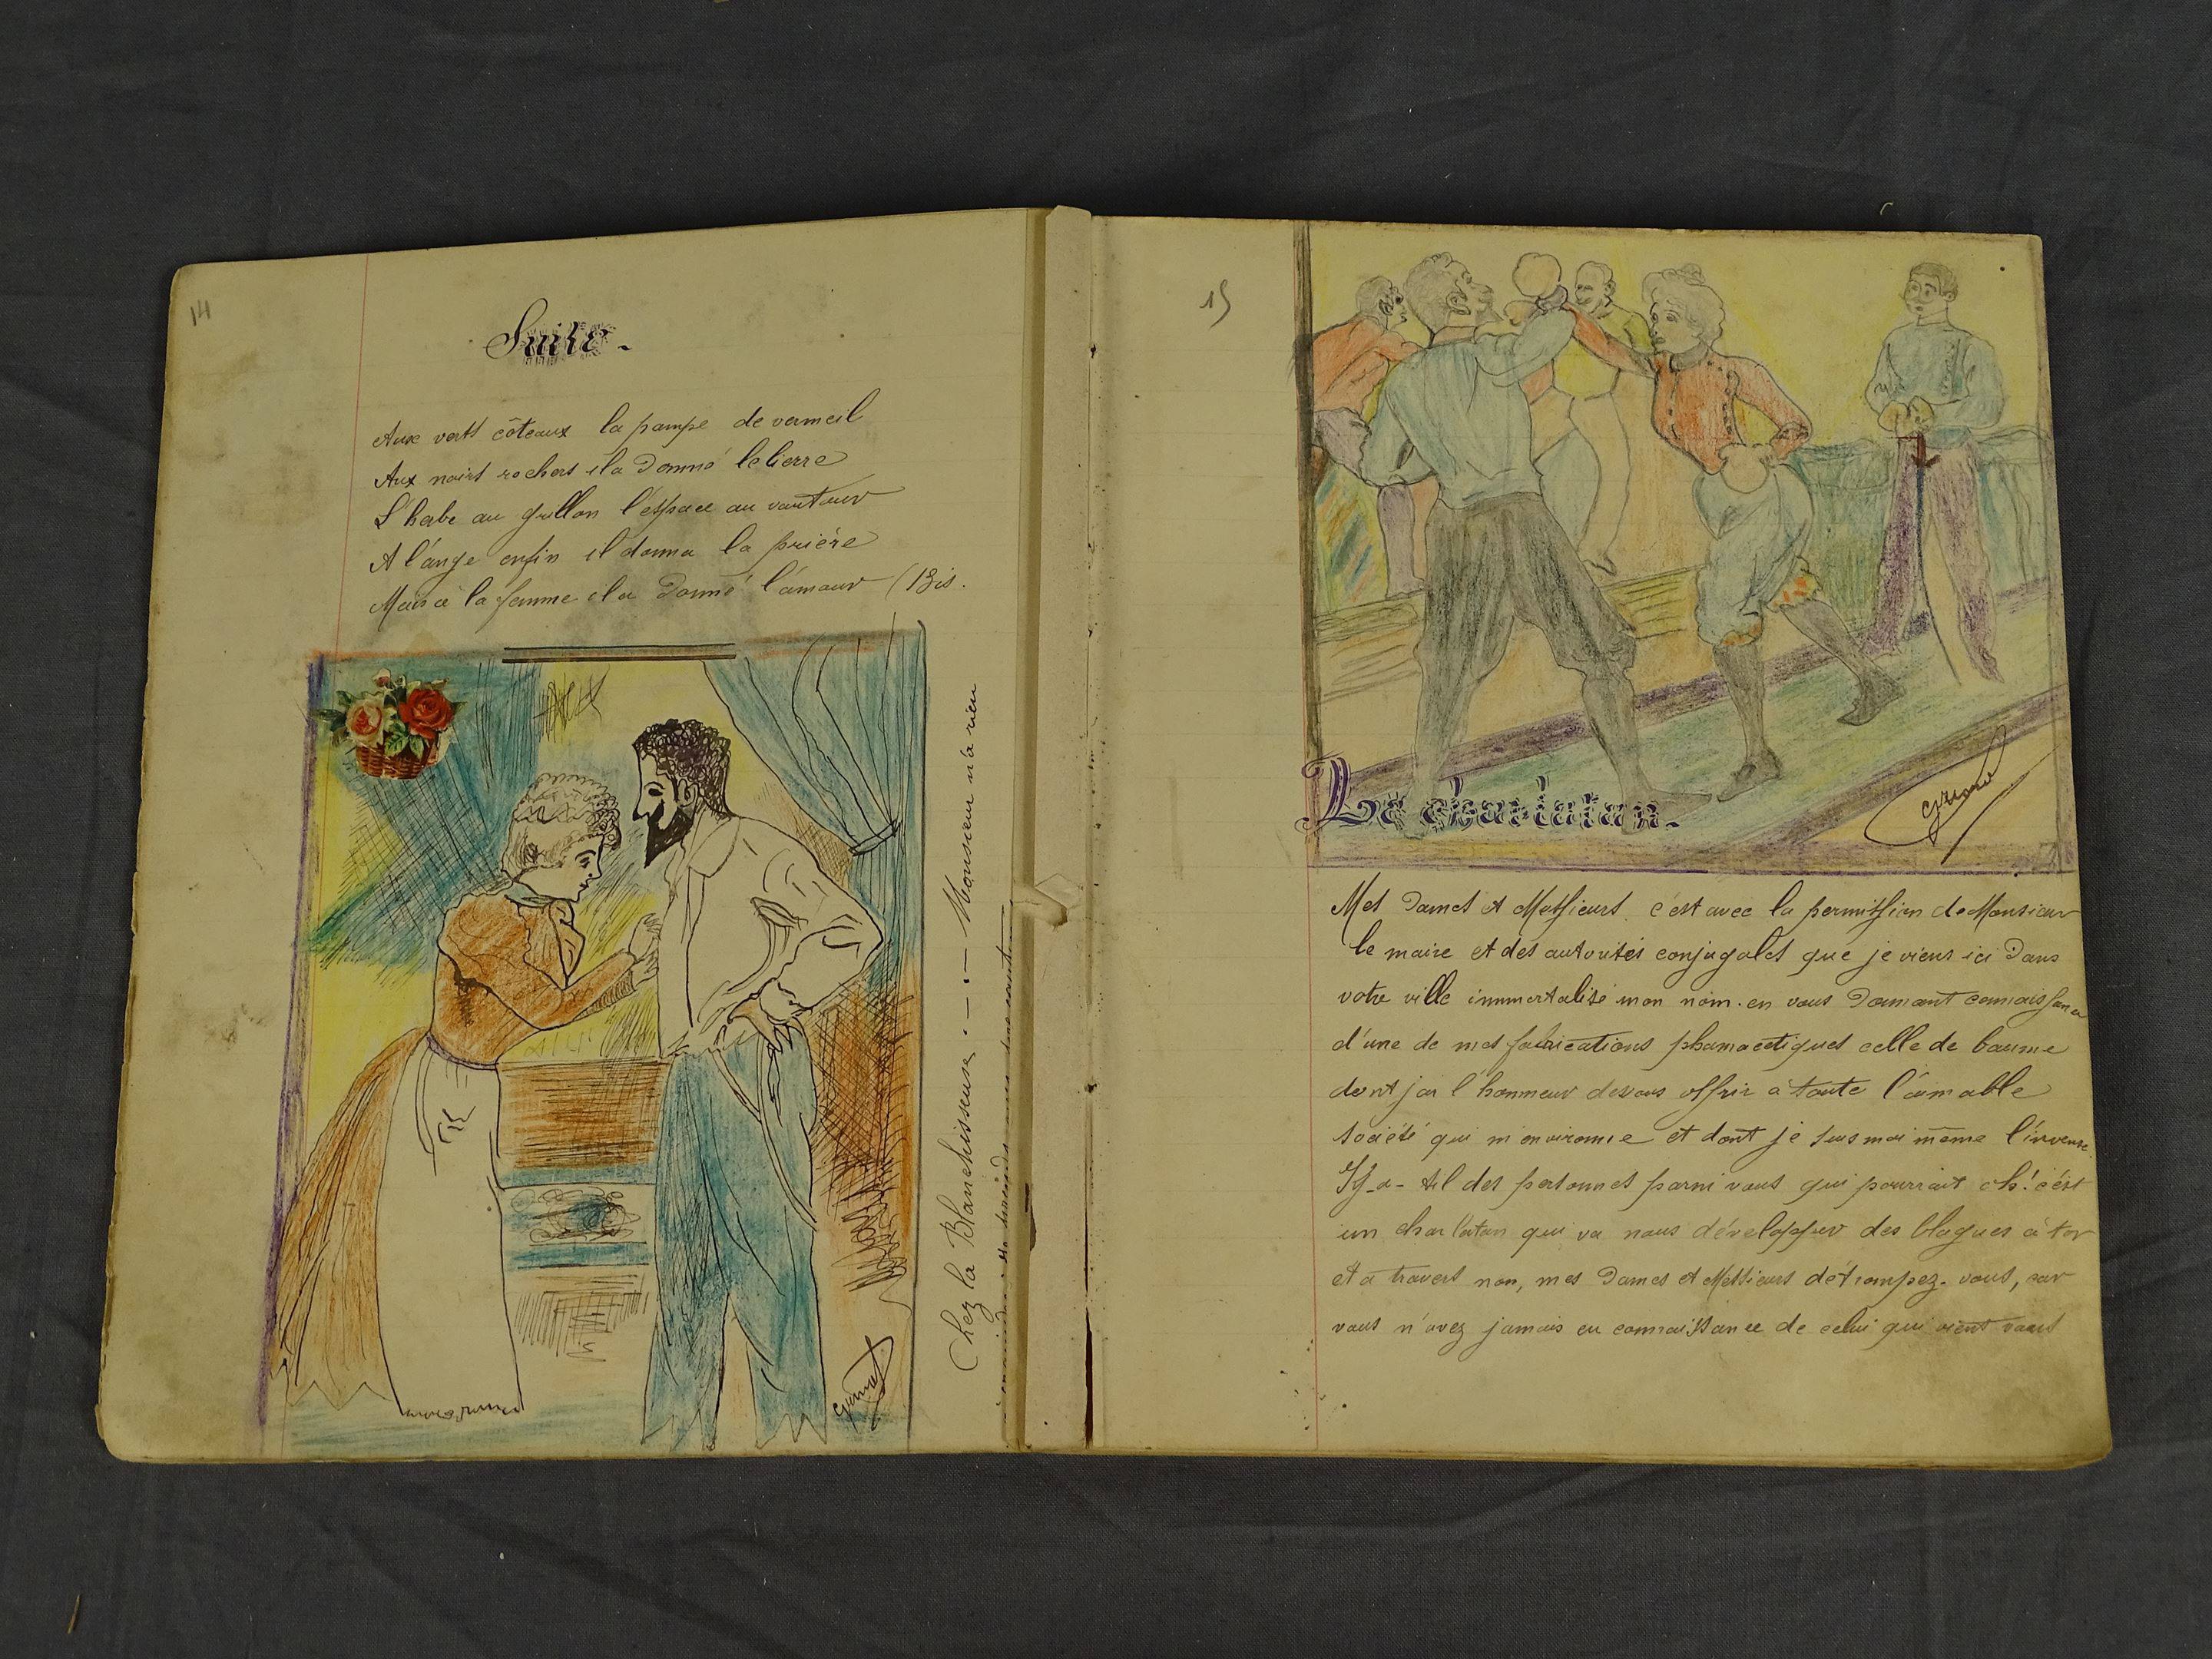 14
Suite.
Aux verts côteaux la pampe de vermeil
Aux noirs rochers il a donné le lierre
L'herbe au grillon l'espace au vautour
A l'ange enfin il donna la prière
Mais à la femme il a donné l'amour (Bis.
Chez la Blanchisseuse. — . — Monsieur n'a rien
15
Le charlatan.
Mes Dames et Messieurs. c'est avec la permission de Monsieur
le maire et des autorités conjugales que je viens ici Dans
votre ville immortalisé mon nom. en vous Donnant connaissance
d'une de mes fabrications phamacetiques celle de baume
dont j'ai l'honneur devous offrir à toute l'aimable
société qui m'environne et dont je suis moi même
Y-a-til des personnes parmi vous qui pourrait oh! c'est
un charlatan qui va nous développer des blagues à tor
et à travers non, mes Dames et Messieurs détrompez-vous, car
vous n'avez jamais eu connaissance de celui qui vient vous